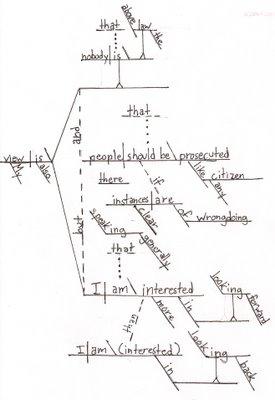 that
above law the
nobody is
and
that
people should be prosecuted
view is
My also
there
if
like any citizen
instances are
clear
of wrongdoing
but
speaking generally
that
I am interested
more
in
looking forward
than
I am (interested)
in
looking back